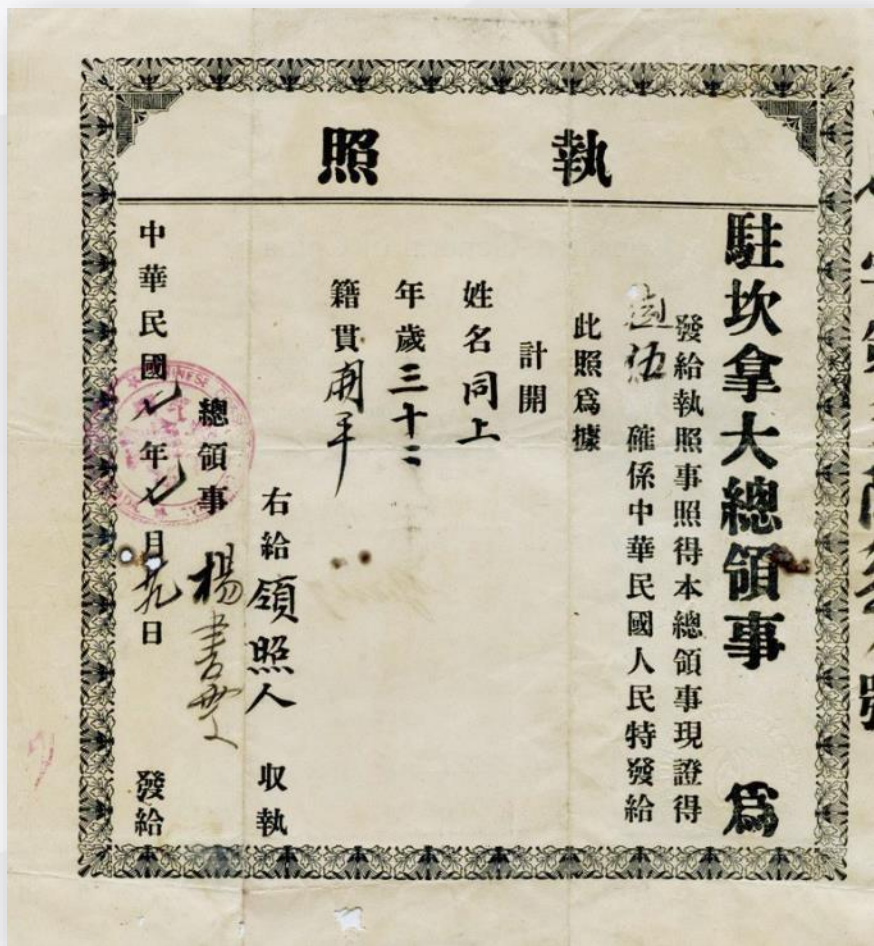 執照
駐坎拿大總領事 為
發給執照事照得本總領事現證得
伍 確係中華民國人民特發給
此照爲據
計開
姓名同上
年歲三十二
籍貫開平
右給領照人 收執
總領事 楊書雯
中華民國七年七月九日 發給
CHINESE
號